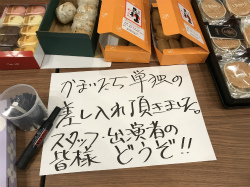 かまいたち単独の
差し入れ頂きました。
スタッフ・出演者の
皆様 どうぞ!!